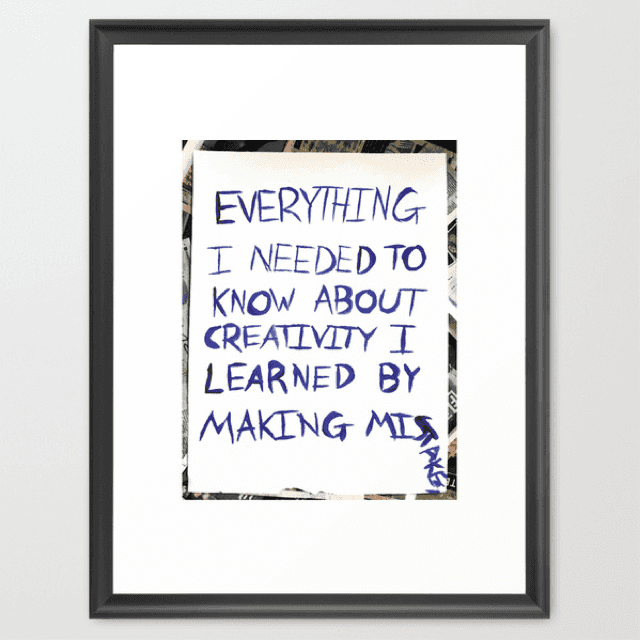 EVERYTHING
I NEEDED TO
KNOW ABOUT
CREATIVITY I
LEARNED BY
MAKING MISTAKES